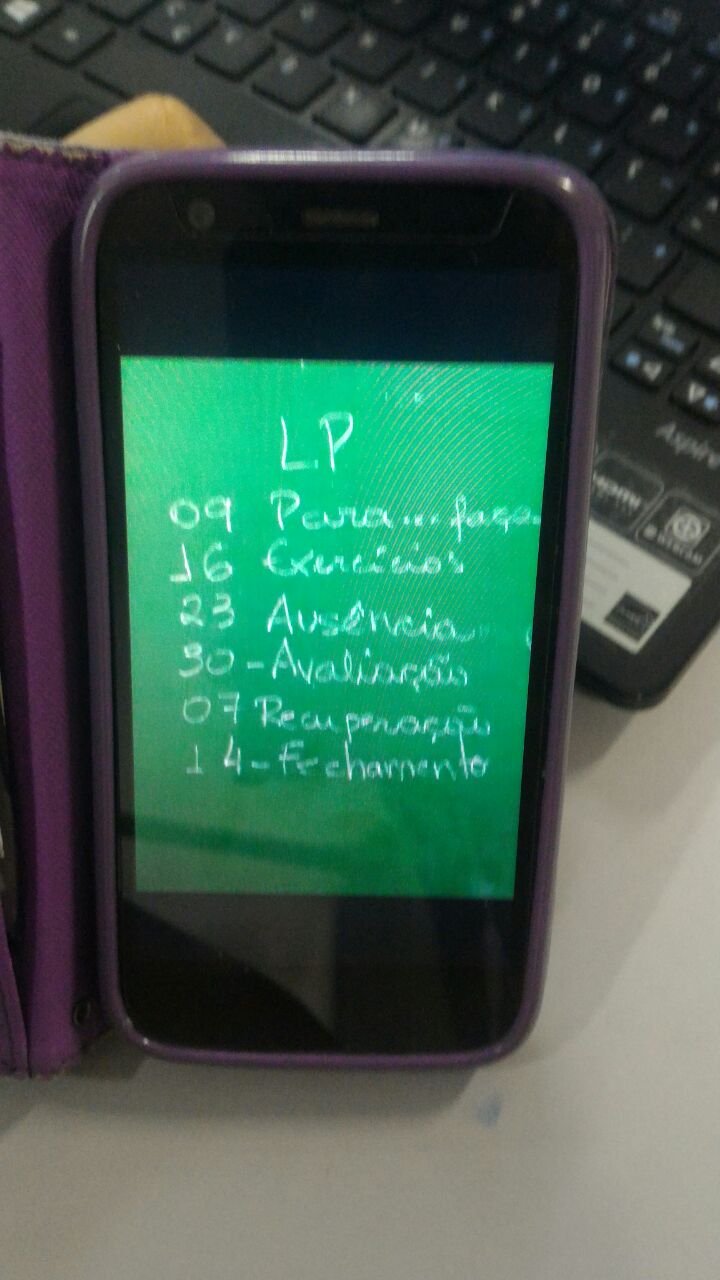 LP
09 Para... faça
16 Exercícios
23 Ausência
30 - Avaliação
07 Recuperação
14 - Fechamento
Aspire
HDMI